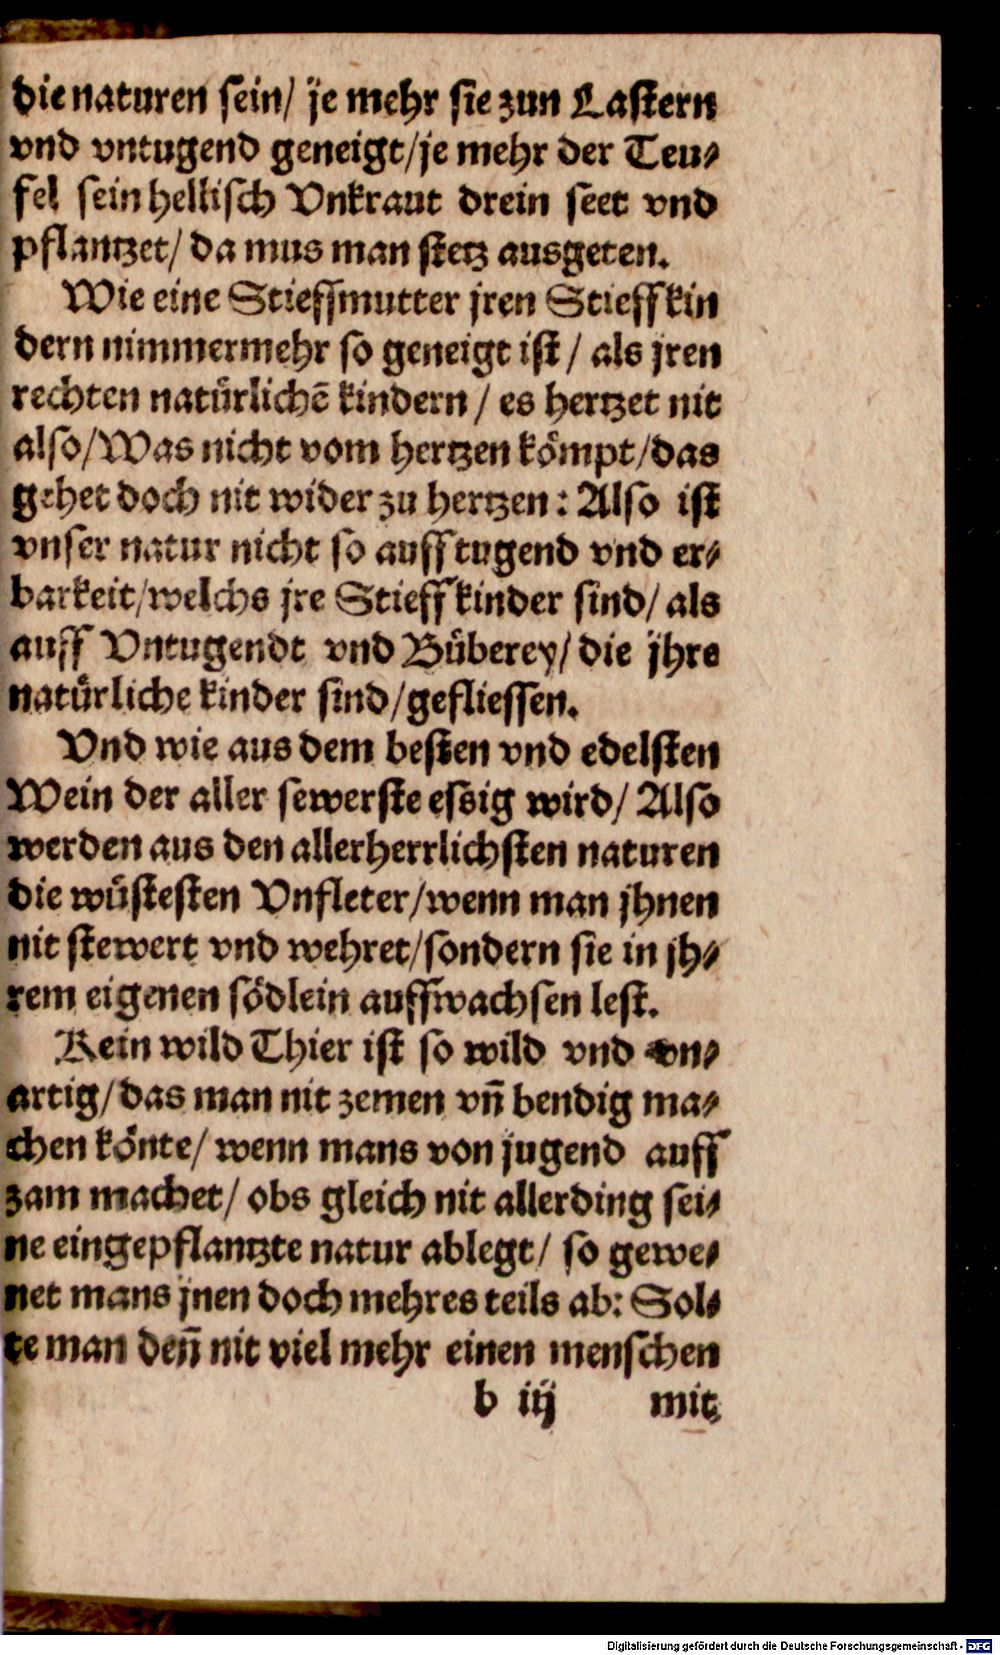 die naturen sein/ je mehr sie zun Lastern
vnd vntugend geneigt/je mehr der Teu-
fel sein hellisch Vnkraut drein seet vnd
pflantzet/ da mus man stetz ausgeten.
Wie eine Stieffmutter jren Stieffkin
dern nimmermehr so geneigt ist/ als jren
rechten natürlichē kindern/ es hertzet nit
also/Was nicht vom hertzen kömpt/das
gehet doch nit wider zu hertzen: Also ist
vnser natur nicht so auff tugend vnd er-
barkeit/welchs jre Stieffkinder sind/ als
auff Vntugendt vnd Büberey/ die jhre
natürliche kinder sind/gefliessen.
Vnd wie aus dem besten vnd edelsten
Wein der aller sewerste essig wird/ Also
werden aus den allerherrlichsten naturen
die wüstesten Vnfleter/wenn man jhnen
nit stewert vnd wehret/sondern sie in jh-
rem eigenen södlein auffwachsen lest.
Kein wild Thier ist so wild vnd vn-
artig/das man nit zemen vn̄ bendig ma-
chen könte/ wenn mans von jugend auff
zam machet/ obs gleich nit allerding sei-
ne eingepflantzte natur ablegt/ so gewe-
net mans jnen doch mehres teils ab: Sol-
te man den̄ nit viel mehr einen menschen
b iij mit
Digitalisierung gefördert durch die Deutsche Forschungsgemeinschaft - DFG